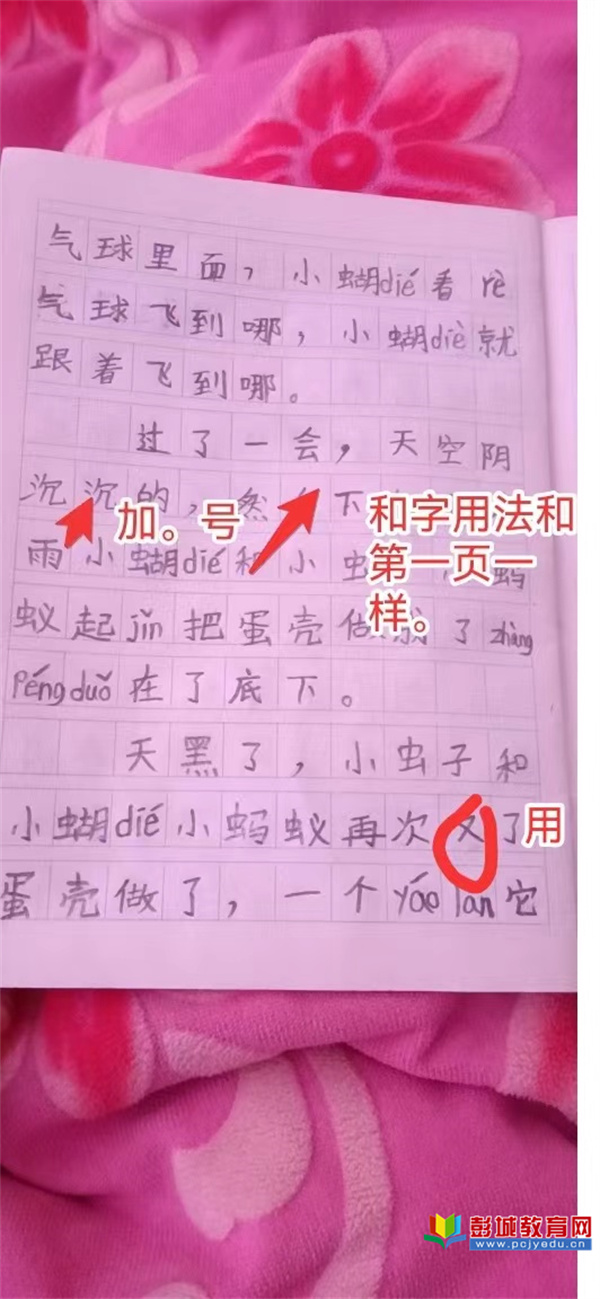 气球里面，小蝴dié看rè
气球飞到哪，小蝴diè就
跟着飞到哪。
过了一会，天空阴
沉沉的，然下
加。号
和字用法和
第一页一
样。
雨小蝴dié和小虫蚂
蚁起jǐn把蛋壳做成了zhàng
péng duǒ在了底下。
天黑了，小虫子和
小蝴dié小蚂蚁再次又了
用
蛋壳做了，一个yáo lán它
彭城教育网
www.pcjyedu.cn